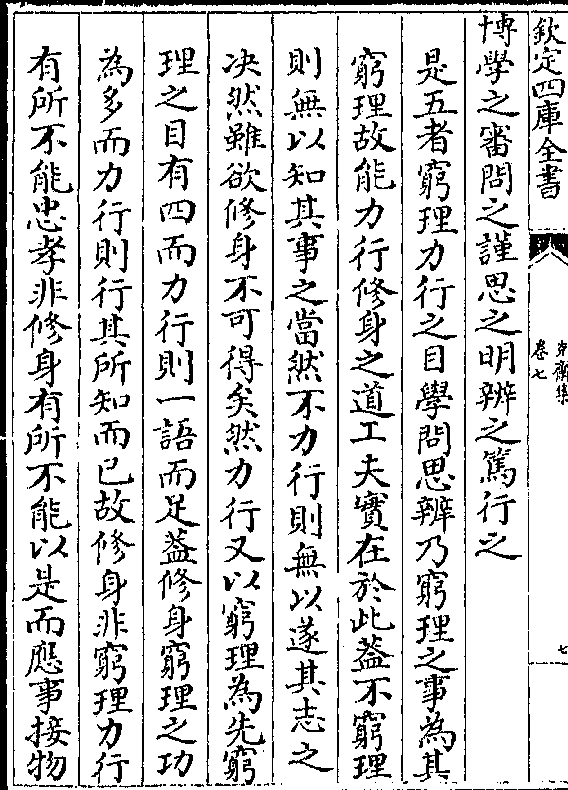 欽定四庫全書
克齋集
卷七
七
博學之審問之謹思之明辨之篤行之
是五者窮理力行之目學問思辨乃窮理之事為其
窮理故能力行修身之道工夫實在於此葢不窮理
則無以知其事之當然不力行則無以遂其志之
决然雖欲修身不可得矣然力行又以窮理為先窮
理之目有四而力行則一語而足葢修身窮理之功
為多而力行則行其所知而已故修身非窮理力行
有所不能忠孝非修身有所不能以是而應事接物